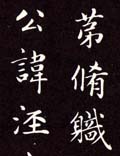 苐脩職
公諱㴉